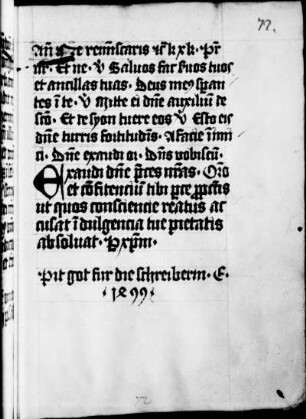 77.
Añ Ne reminiscaris ꝛc̃ k x k. Pr̃
nr̃. Et ne. V Saluos fac ẜuos tuos
et ancillas tuas. Deus meꝰ speran
tes ĩ te. V Mitte ei dñe auxiliũ de
scõ. Et de syon tuere eos V Esto eis
dñe turris fortitudĩs. A facie ĩimi
ci. Dñe exaudi or. Dñs vobiscũ.
Exaudi dñe p̃ces nr̃as. Oro
et cõfitenciũ tibi parce pctis
ut quos consciencie reatus ac
cusat ĩdulgencia tue pietatis
absoluat. P xpm̃.
Pit got fur die schreiberin. E.
. 1499 .
77